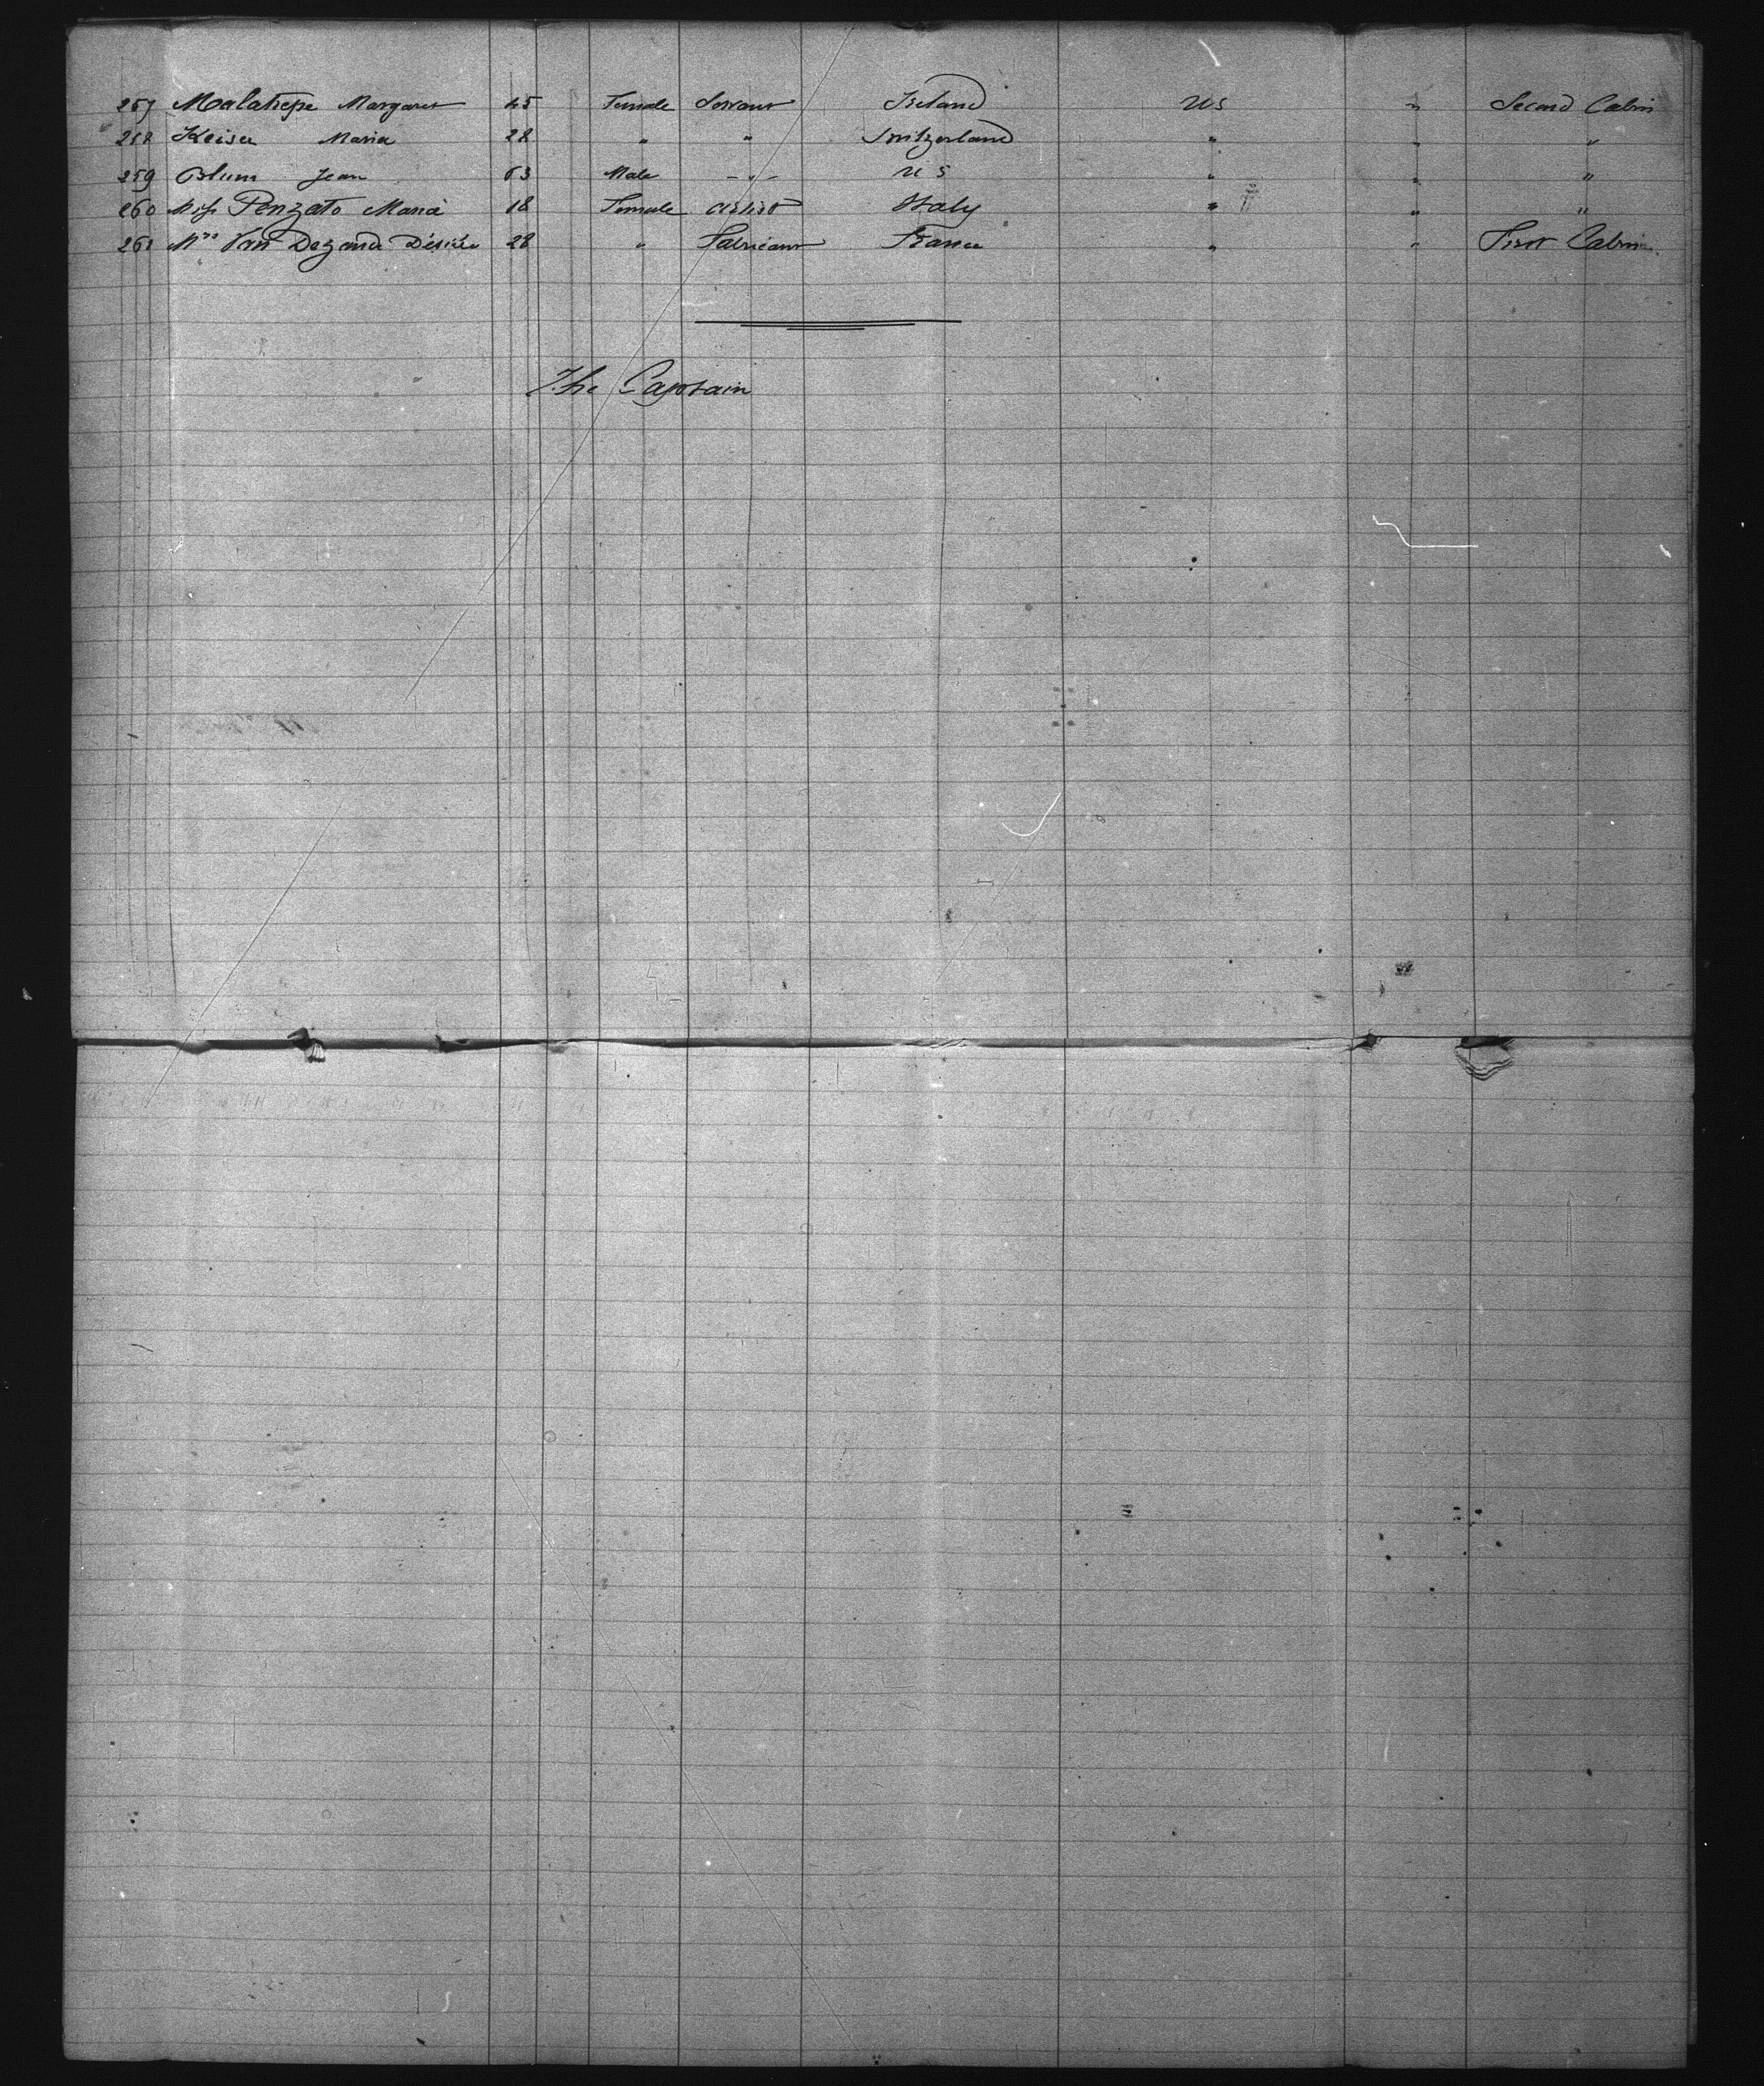 257 Malatiepe Margaret 45 Female Servant Ireland US " Second Cabin
258 Keiser Maria 28 " " Switzerland " " "
259 Blum Jean 63 Male - " - U S " " "
260 Miss Penzato Maria 18 Female Artist Italy " " "
261 Mrs Van Dezande Désirée 28 " Fabricant France " " First Cabin
The Captain